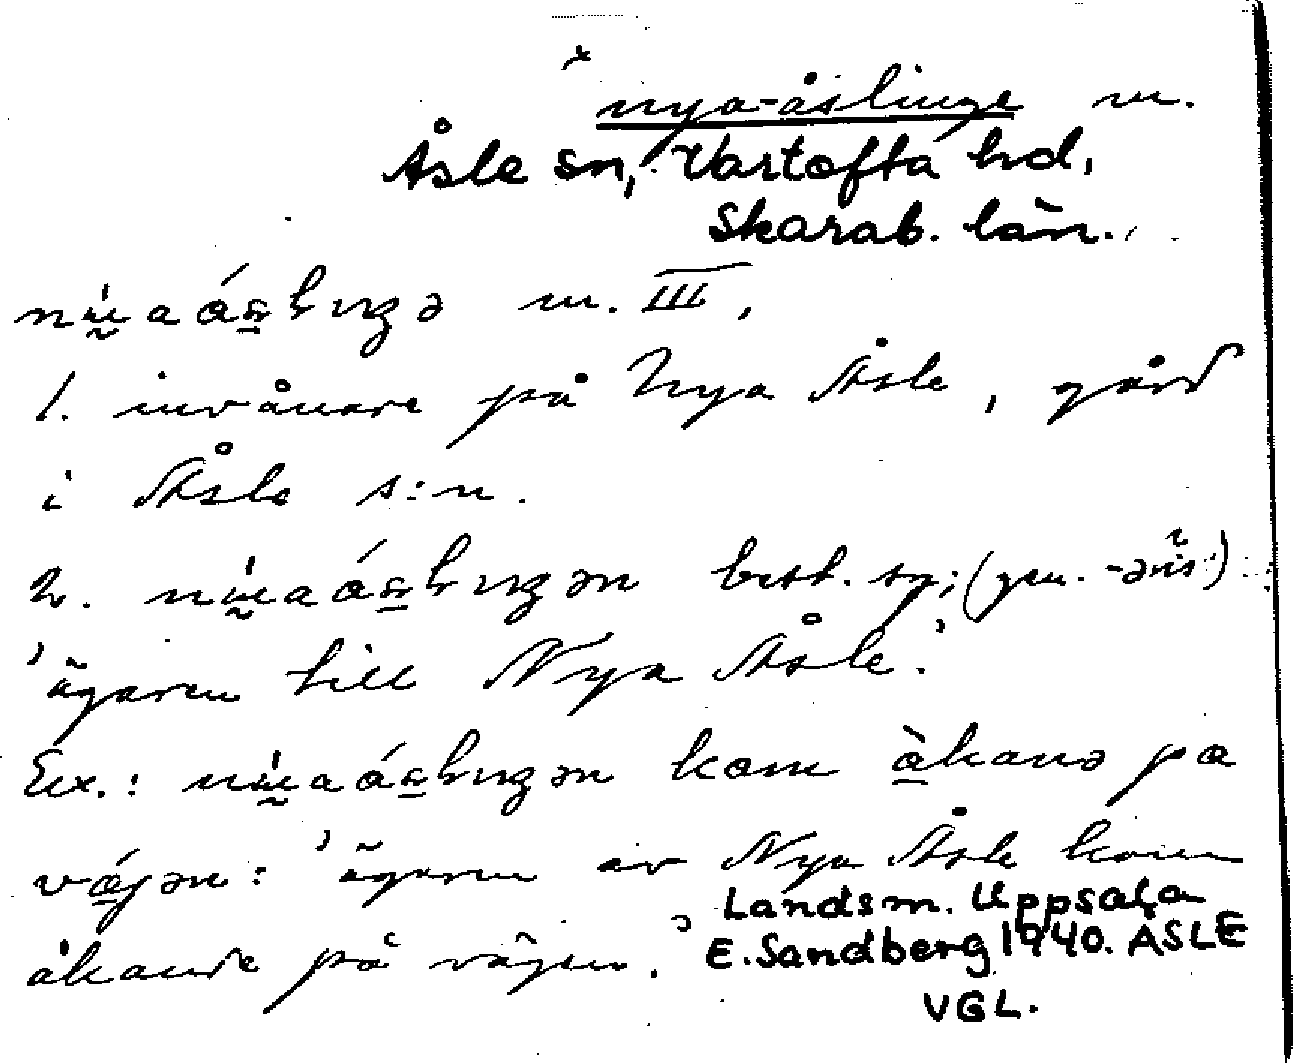 nya-åslinge m.
Åsle sn, Vartofta hd,
Skarab. län.
m. III,
1. invånare på Nya Åsle, gård
i Åsle s:n.
2. best. sg; (gen.
'ägaren till Nya Åsle.'
Ex.: kom åkanə pa
vägən: 'ägaren av Nya Åsle kom
åkande på vägen.'
Landsm. Uppsala
E. Sandberg 1940. ÅSLE
VGL.